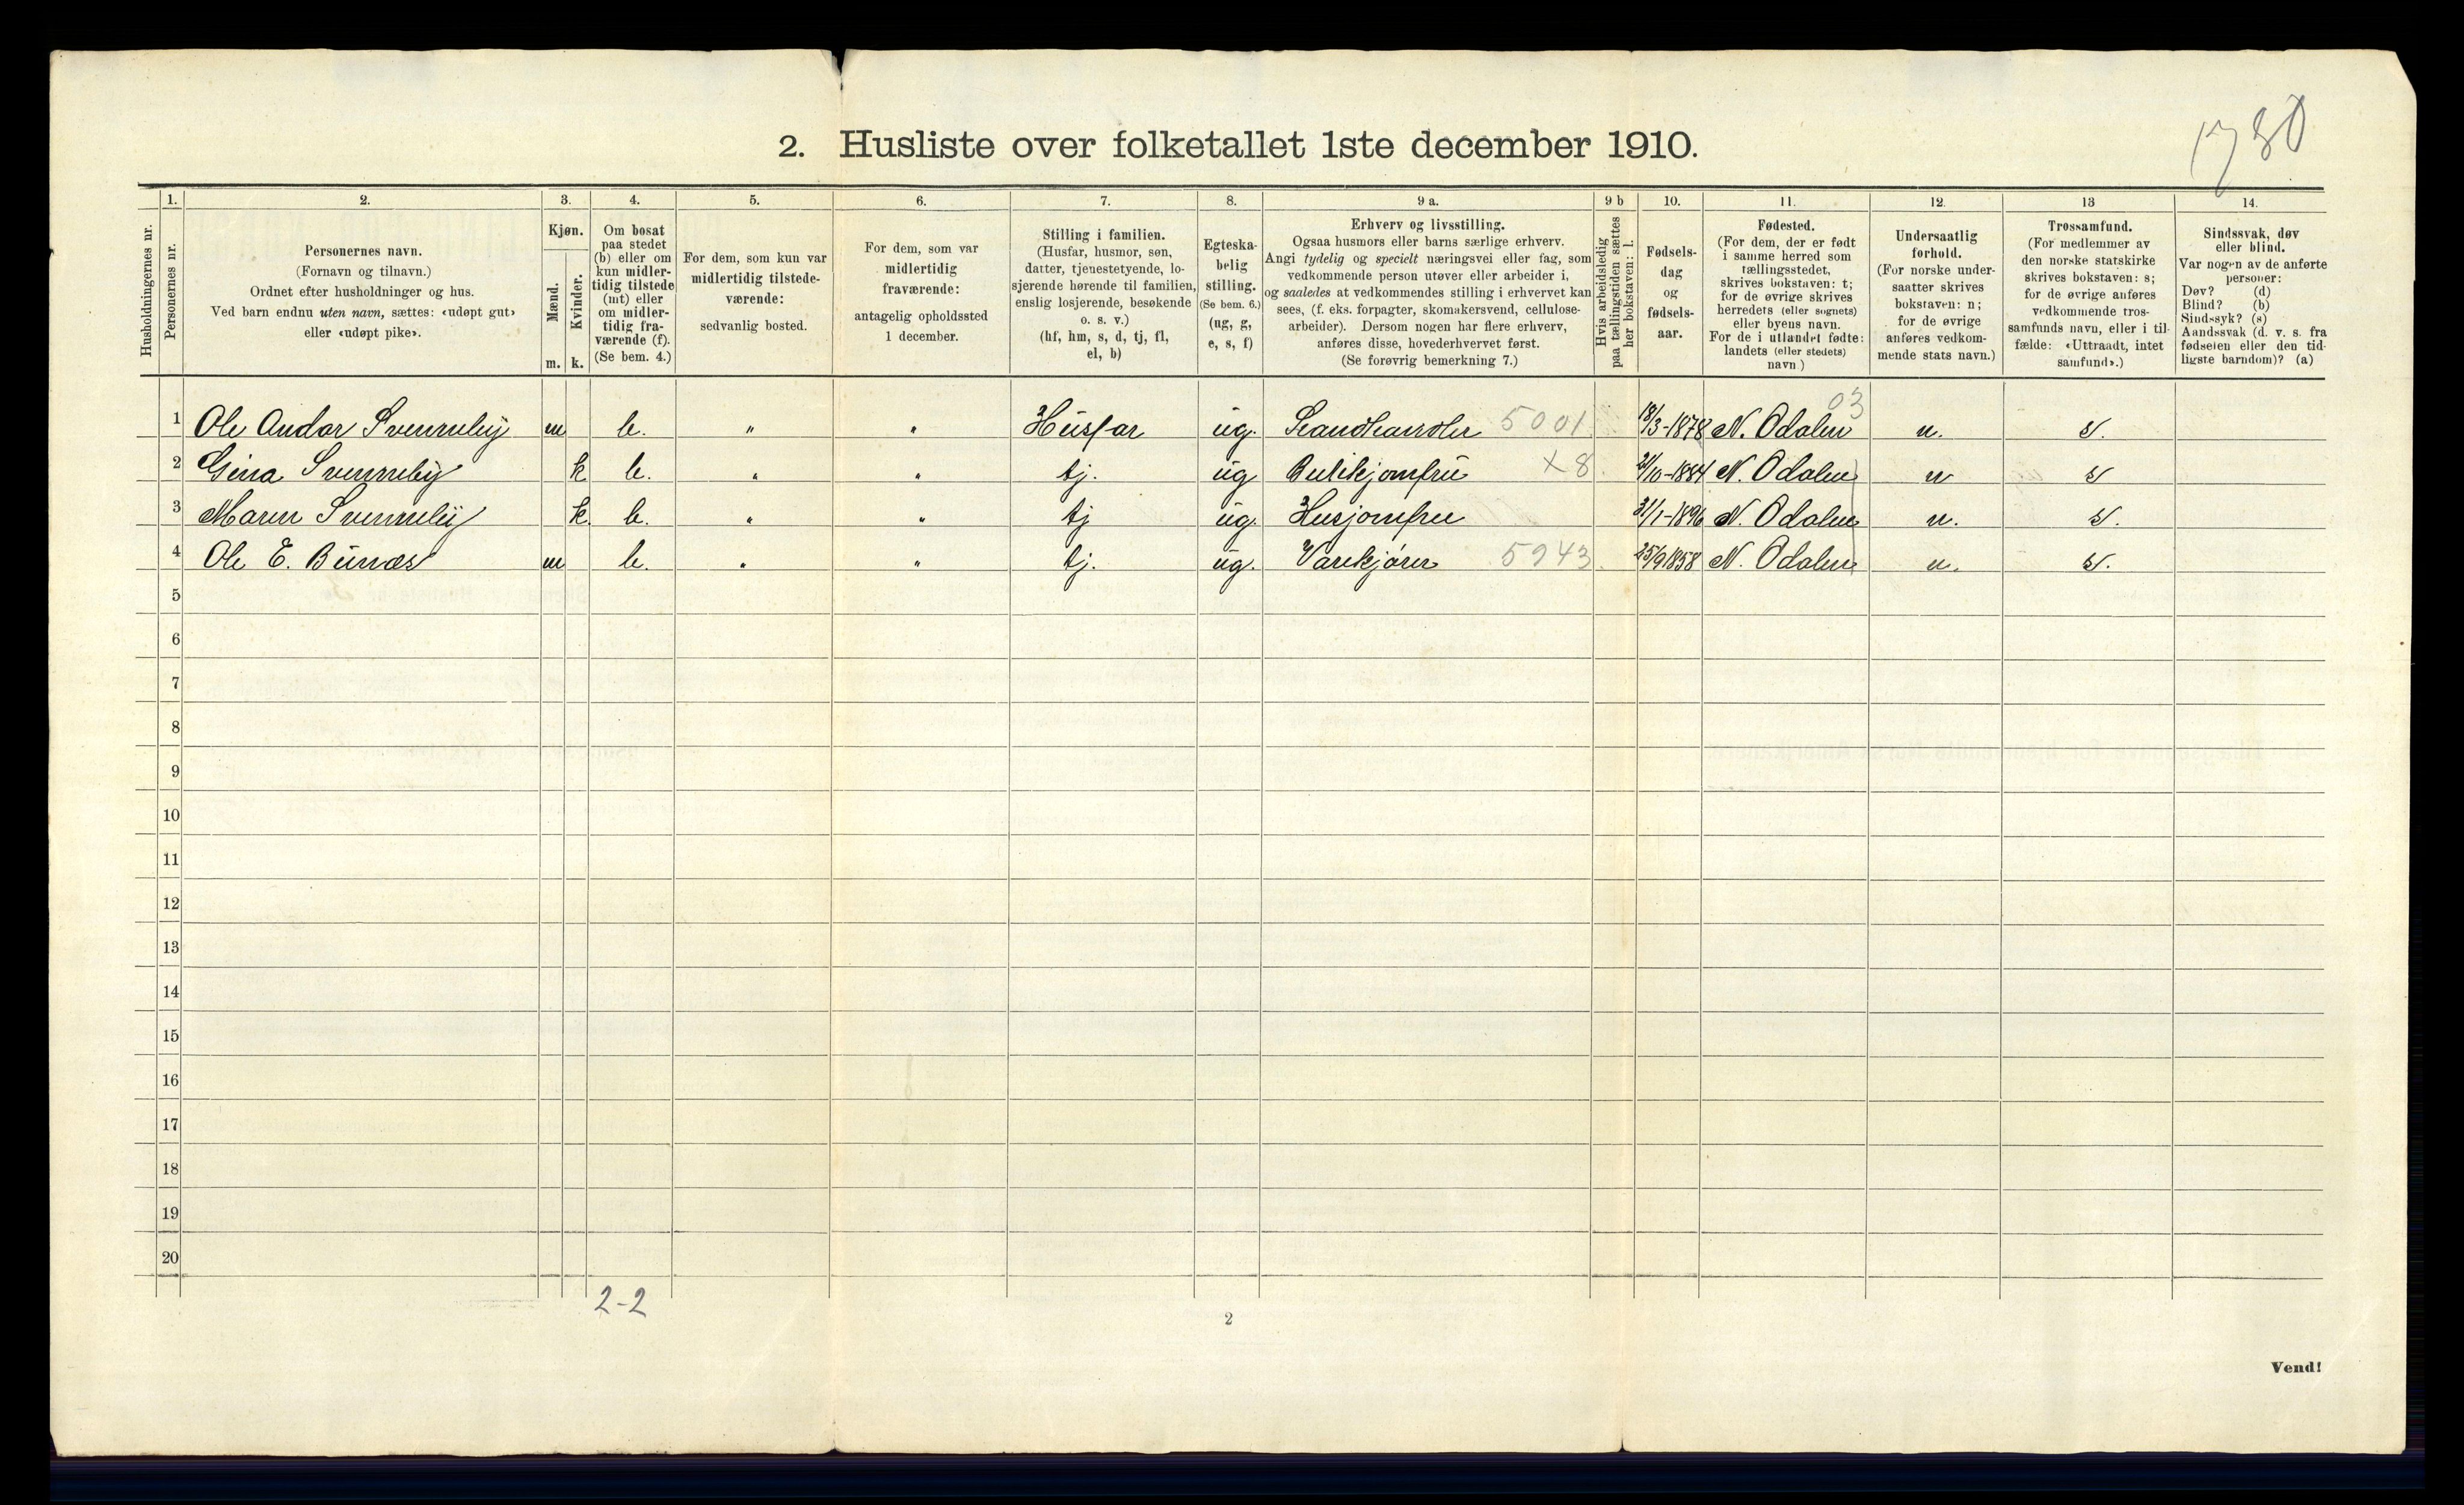 1780
2. Husliste over folketallet 1ste december 1910.
Husholdningernes nr.
1. Personernes nr.
2. Personernes navn.
(Fornavn og tilnavn.)
Ordnet efter husholdninger og hus.
Ved barn endnu uten navn, sættes: «udøpt gut»
eller «udøpt pike».
3. Kjøn.
Mænd. m.
Kvinder. k.
4. Om bosat
paa stedet
(b) eller om
kun midler-
tidig tilstede
(mt) eller
om midler-
tidig fra-
værende (f).
(Se bem. 4.)
5. For dem, som kun var
midlertidig tilstede-
værende:
sedvanlig bosted.
6. For dem, som var
midlertidig
fraværende:
antagelig opholdssted
1 december.
7. Stilling i familien.
(Husfar, husmor, søn,
datter, tjenestetyende, lo-
sjerende hørende til familien,
enslig losjerende, besøkende
o. s. v.)
(hf, hm, s, d, tj, fl,
el, b)
8. Egteska-
belig
stilling.
(Se bem. 6.)
(ug, g,
e, s, f)
9 a. Erhverv og livsstilling.
Ogsaa husmors eller barns særlige erhverv.
Angi tydelig og specielt næringsvei eller fag, som
vedkommende person utøver eller arbeider i,
og saaledes at vedkommendes stilling i erhvervet kan
sees, (f. eks. forpagter, skomakersvend, cellulose-
arbeider). Dersom nogen har flere erhverv,
anføres disse, hovederhvervet først.
(Se forøvrig bemerkning 7.)
9 b Hvis arbeidsledig
paa tællingstiden sættes
her bokstaven: l.
10. Fødsels-
dag
og
fødsels-
aar.
11. Fødested.
(For dem, der er født
i samme herred som
tællingsstedet,
skrives bokstaven: t;
for de øvrige skrives
herredets (eller sognets)
eller byens navn.
For de i utlandet fødte:
landets (eller stedets)
navn.)
12. Undersaatlig
forhold.
(For norske under-
saatter skrives
bokstaven: n;
for de øvrige
anføres vedkom-
mende stats navn.)
13 Trossamfund.
(For medlemmer av
den norske statskirke
skrives bokstaven: s;
for de øvrige anføres
vedkommende tros-
samfunds navn, eller i til-
fælde: «Uttraadt, intet
samfund».)
14. Sindssvak, døv
eller blind.
Var nogen av de anførte
personer:
Døv? (d)
Blind? (b)
Sindssyk? (s)
Aandssvak (d. v. s. fra
fødselen eller den tid-
ligste barndom)? (a)
03
1 Ole Andor Svenneby m b. " " Husfar ug. Landhandler 5001 18/3-1878 N. Odalen n. s.
2 Gina Svenneby k b. " " tj. ug Butikjomfru X8 21/10-1884 N. Odalen n s
3 Maren Svenneby k. b. " " tj ug. Husjomfru 31/1-1896 N. Odalen n. s.
4 Ole E. Bunæs m b. " " tj. ug. Varekjører 5943 25/9 1858 N. Odalen n. s.
5
6
7
8
9
10
11
12
13
14
15
16
17
18
19
20
2-2
2
Vend!